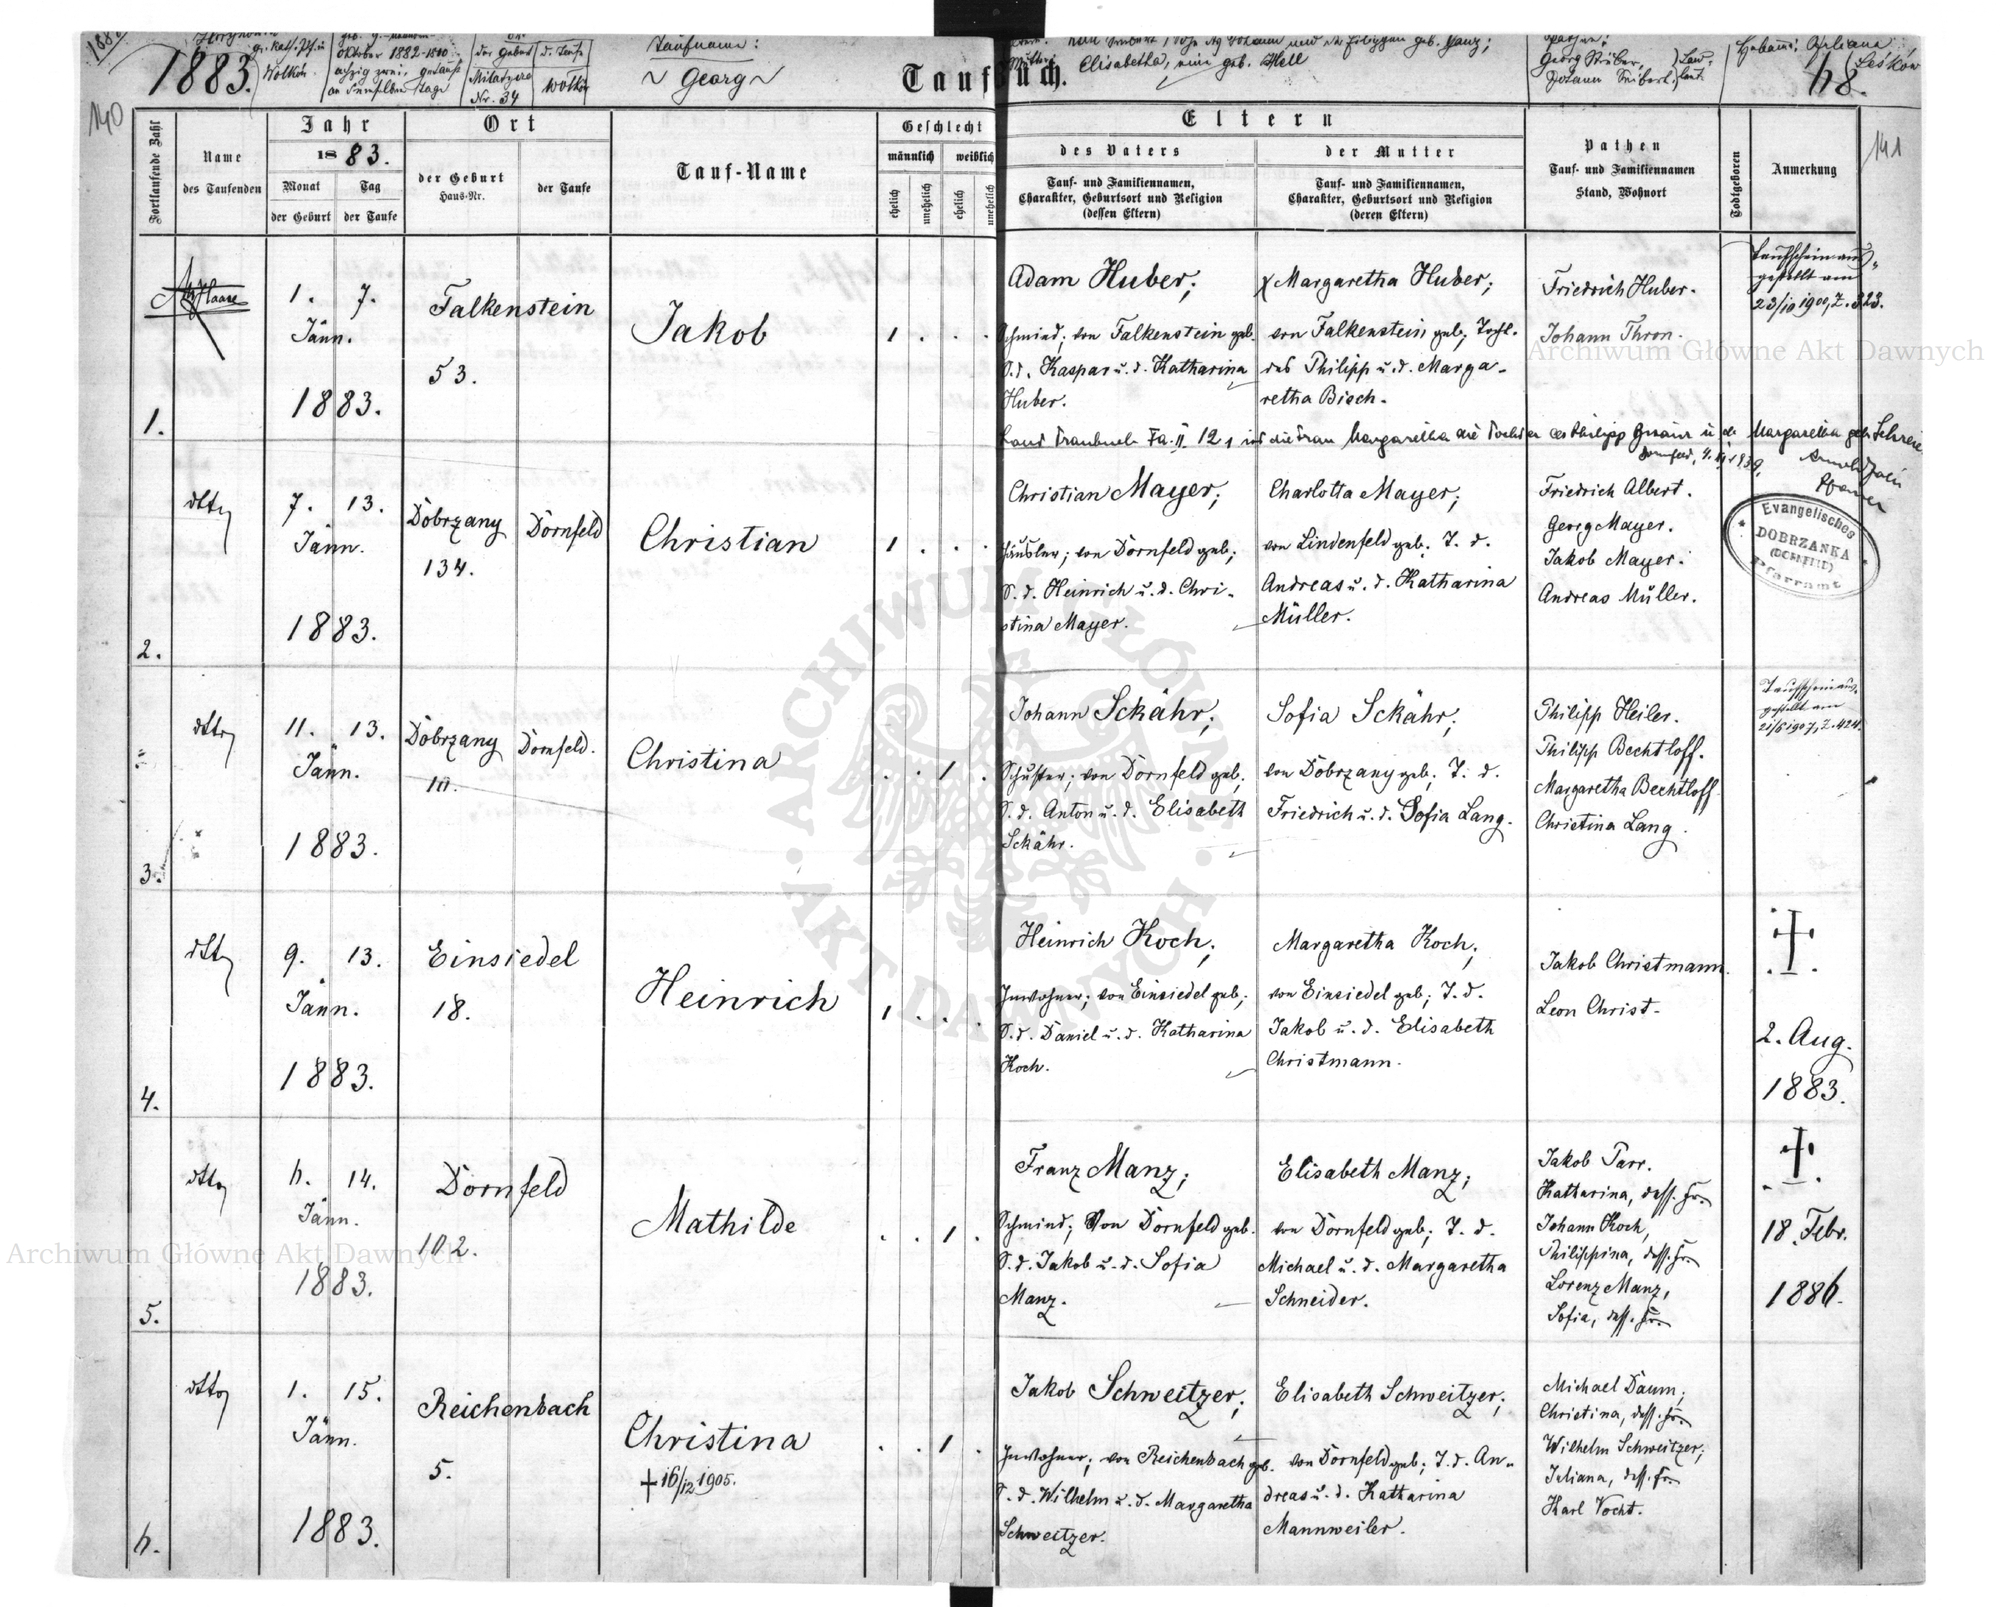 1883.
Wolków.
Oktober 1882
Nr. 34
Taufname:
~ Georg ~
Elisabetha,
geb. Hell
Georg
Johann
Juliana
Taufbuch.
68.
140
141
Fortlaufende Zahl
Name
des Taufenden
Jahr
1883.
Monat
Tag
der Geburt
der Taufe
Ort
der Geburt
Haus-Nr.
der Taufe
Tauf-Name
Geschlecht
männlich
weiblich
ehelich
unehelich
ehelich
unehelich
Eltern
des Vaters
Tauf- und Familiennamen,
Charakter, Geburtsort und Religion
(dessen Eltern)
der Mutter
Tauf- und Familiennamen,
Charakter, Geburtsort und Religion
(deren Eltern)
Pathen
Tauf- und Familiennamen
Stand, Wohnort
Todtgeboren
Anmerkung
1.
1. 7.
Jänn.
1883.
Falkenstein
53.
Jakob
1 . . .
Adam Huber;
Schmied; von Falkenstein geb.
S. d. Kaspar u. d. Katharina
Huber.
Margaretha Huber;
von Falkenstein geb; Tocht.
des Philipp u. d. Marga-
retha Bisch.
Friedrich Huber.
Johann Thron.
Taufschein aus-
gestellt am
23/10 1900, Z. 323.
Margaretha die Tochter des Philipp
Margaretha geb.
2.
dtto
7. 13.
Jänn.
1883.
Dobrzany
134.
Dornfeld
Christian
1 . . .
Christian Mayer;
Häusler; von Dornfeld geb;
S. d. Heinrich u. d. Chri-
stina Mayer.
Charlotta Mayer;
von Lindenfeld geb. T. d.
Andreas u. d. Katharina
Müller.
Friedrich Albert.
Georg Mayer.
Jakob Mayer.
Andreas Müller.
Evangelisches
DOBRZANKA
(DORNFELD)
Pfarramt
3.
dtto
11. 13.
Jänn.
1883.
Dobrzany
10.
Dornfeld.
Christina
. . 1 .
Johann Skähr;
Schuster; von Dornfeld geb;
S. d. Anton u. d. Elisabeth
Skähr.
Sofia Skähr;
von Dobrzany geb; T. d.
Friedrich u. d. Sofia Lang.
Philipp Heiler.
Philipp Bechtloff.
Margaretha Bechtloff
Christina Lang.
Taufschein aus-
gestellt am
21/6 1907, Z. 424.
4.
dtto
9. 13.
Jänn.
1883.
Einsiedel
18.
Heinrich
1 . . .
Heinrich Koch;
Inwohner; von Einsiedel geb;
S. d. Daniel u. d. Katharina
Koch.
Margaretha Koch;
von Einsiedel geb; T. d.
Jakob u. d. Elisabeth
Christmann.
Jakob Christmann.
Leon Christ.
2. Aug.
1883.
5.
dtto
6. 14.
Jänn.
1883.
Dornfeld
102.
Mathilde
. . 1 .
Franz Manz;
Schmied; von Dornfeld geb.
S. d. Jakob u. d. Sofia
Manz.
Elisabeth Manz;
von Dornfeld geb; T. d.
Michael u. d. Margaretha
Schneider.
Jakob Parr.
Katharina, dess. Fr.
Johann Koch,
Philippina, dess. Fr.
Lorenz Manz,
Sofia, dess. Fr.
18. Febr.
1886.
6.
dtto
1. 15.
Jänn.
1883.
Reichenbach
5.
Christina
† 16/12 1905.
. . 1 .
Jakob Schweitzer;
Inwohner; von Reichenbach geb.
S. d. Wilhelm u. d. Margaretha
Schweitzer.
Elisabeth Schweitzer;
von Dornfeld geb; T. d. An-
dreas u. d. Katharina
Mannweiler.
Michael Daum;
Christina, dess. Fr.
Wilhelm Schweitzer;
Juliana, dess. Fr.
Karl Vocht.
Archiwum Główne Akt Dawnych
Archiwum Główne Akt Dawnych
ARCHIWUM GŁÓWNE
AKT DAWNYCH